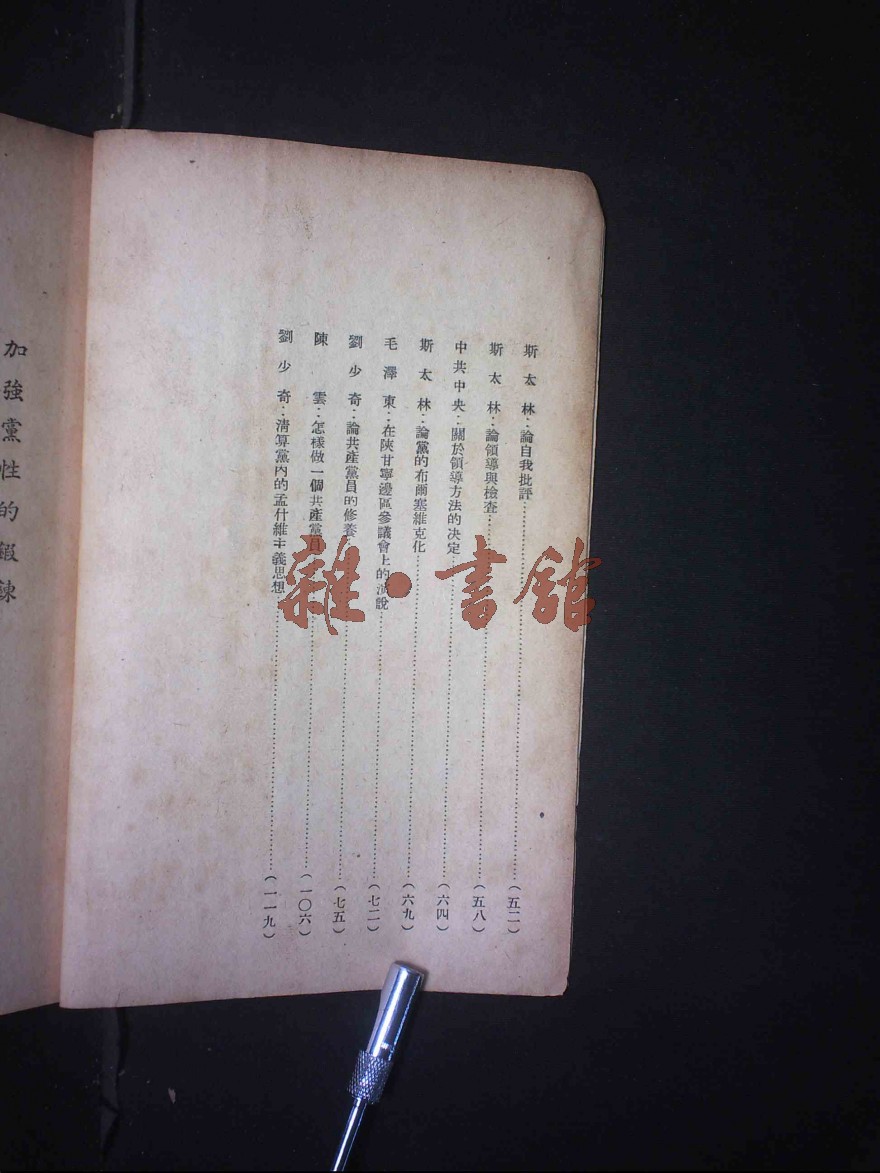 斯太林：論自我批評……（五二）
斯太林：論領導與檢查……（五八）
中共中央：關於領導方法的决定……（六四）
斯太林：論黨的布爾塞維克化……（六九）
毛澤東：在陝甘寧邊區參議會上的演說……（七二）
劉少奇：論共產黨員的修養……（七五）
陳雲：怎樣做一個共產黨員……（一〇六）
劉少奇：清算黨內的孟什維主義思想……（一一九）
加強黨性的鍛鍊
雜·書館